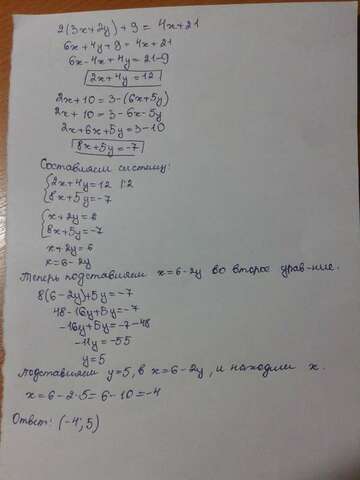 2(3x+2y)+9= 4x+21
6x+4y+9=4x+21
6x-4x+4y=21-9
2x+4y=12
2x+10=3-(6x+5y)
2x+10=3-6x-5y
2x+6x+5y=3-10
8x+5y=-7
Составляем систему:
{2x+4y=12 |:2
{8x+5y=-7
{x+2y=6
{8x+5y=-7
x+2y=6
x=6-2y
Теперь подставляем x=6-2y во второе урав-ние.
8(6-2y)+5y=-7
48-16y+5y=-7
-16y+5y=-7-48
-11y=-55
y=5
Подставляем y=5, в x=6-2y, и находим x.
x=6-2·5=6-10=-4
Ответ: (-4;5)